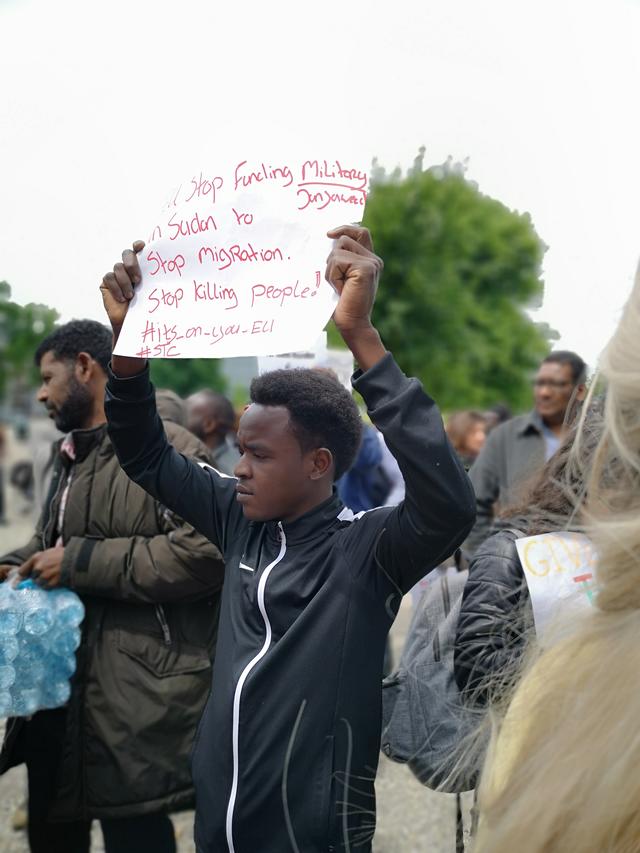 Stop Funding Military
Janjaweed
in Sudan to
Stop Migration.
Stop killing people!
#its_on_you_EU
#STC
GIVE